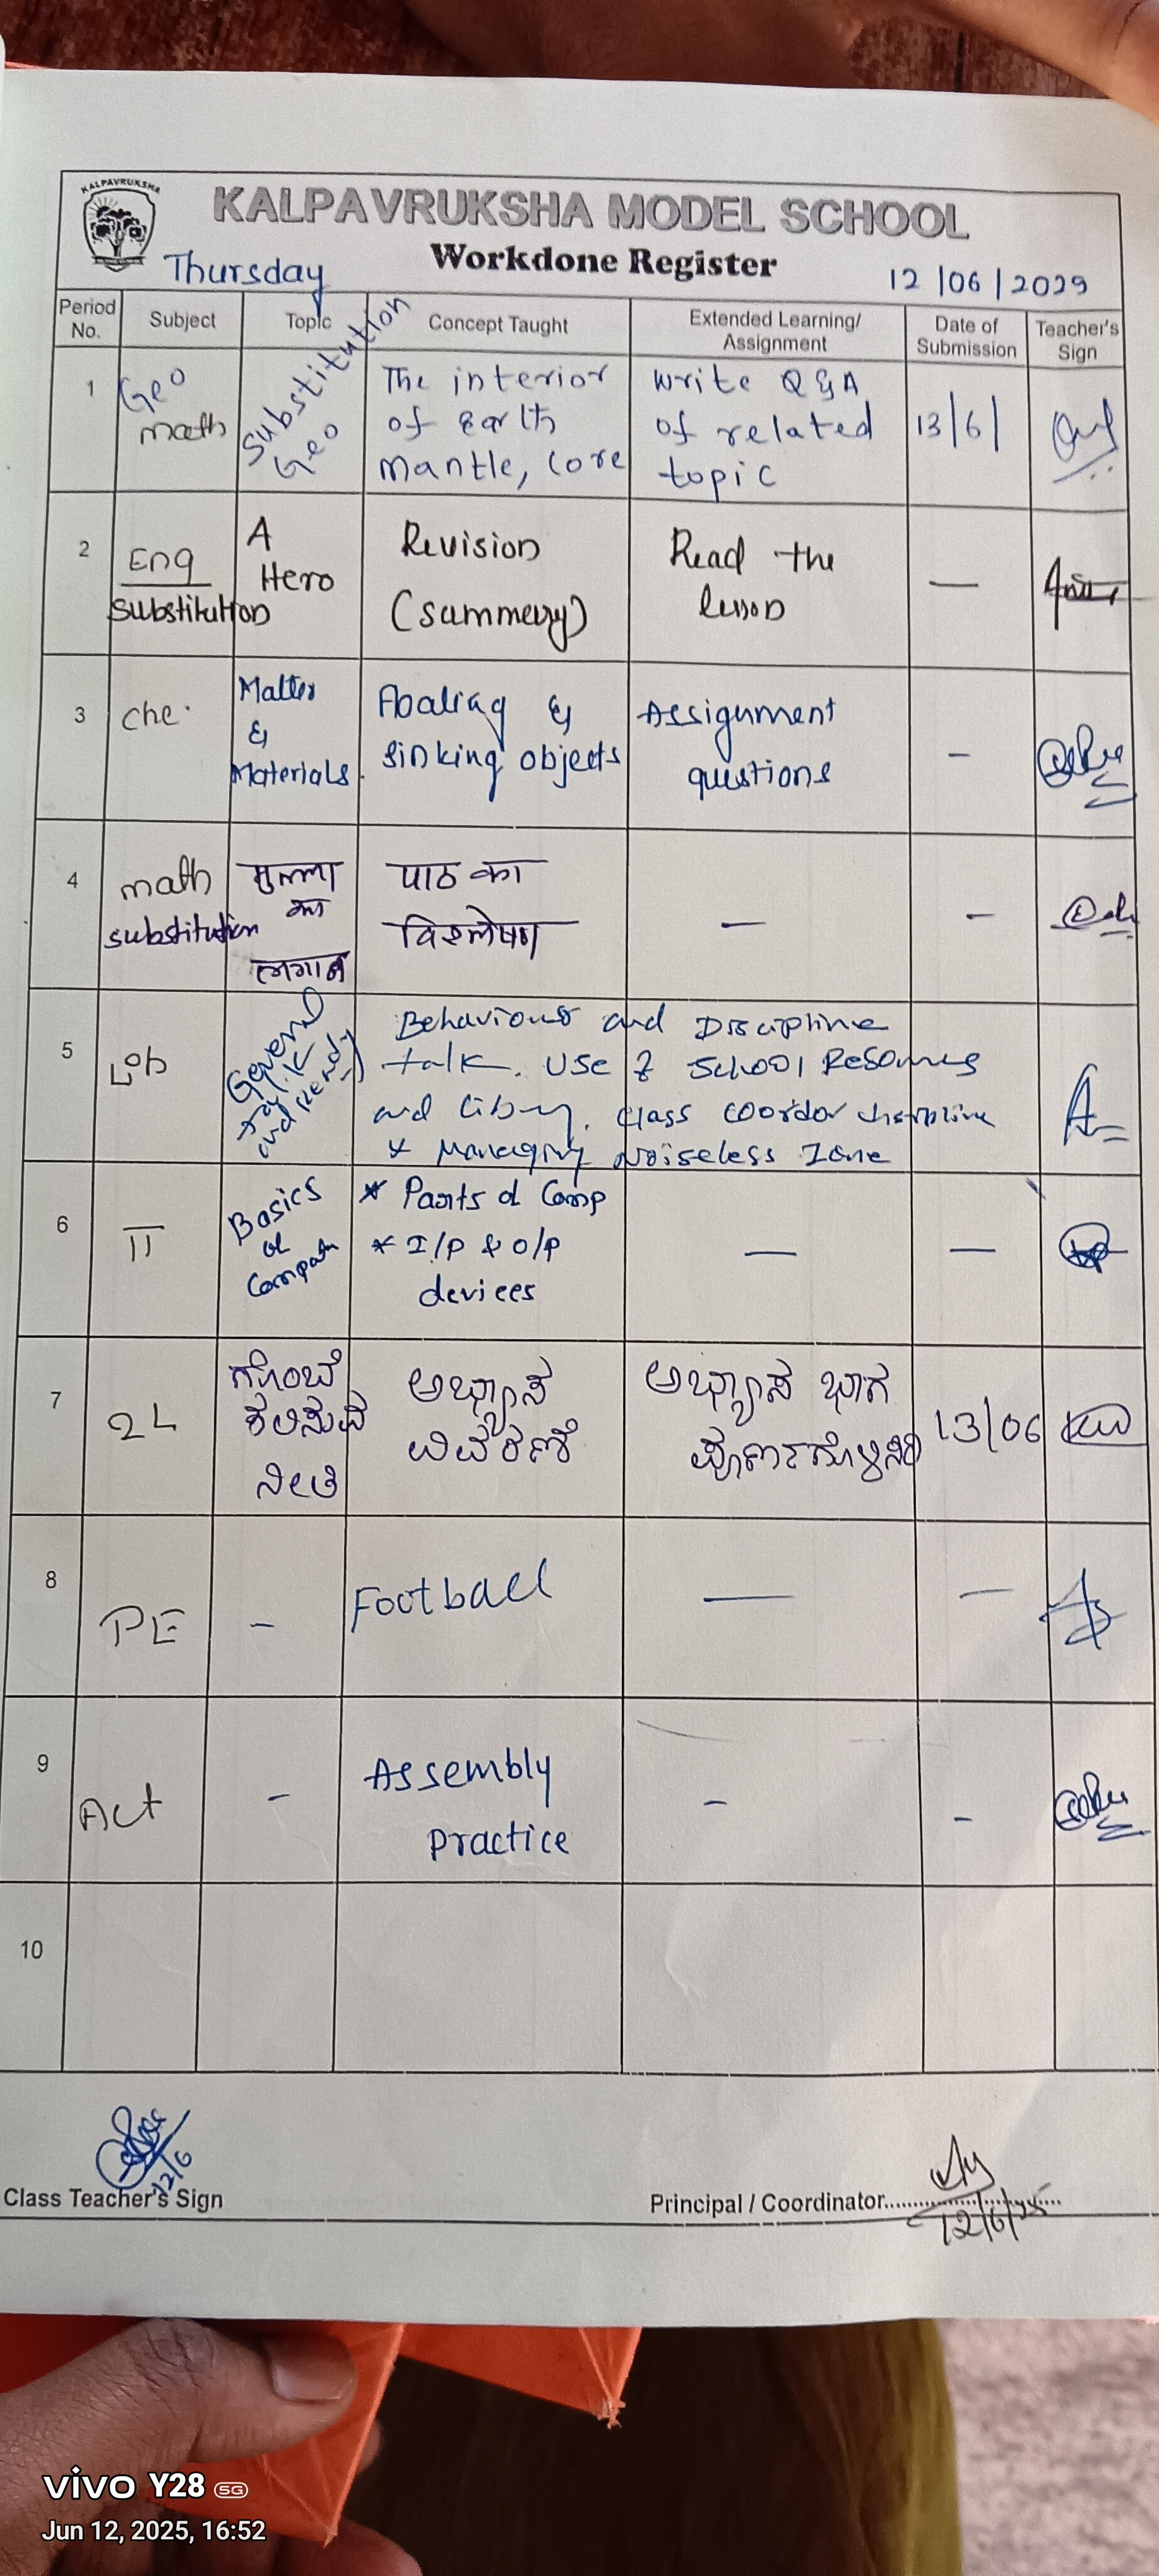 KALPAVRUKSHA
KALPAVRUKSHA MODEL SCHOOL
Workdone Register
Thursday
12/06/2029
Period No.
Subject
Topic
Concept Taught
Extended Learning/
Assignment
Date of
Submission
Teacher's
Sign
1
Geo
math
Substitution
Geo
The interior
of Earth
mantle, core
Write Q&A
of related
topic
13/6/
2
Eng
substitution
A
Hero
Revision
(summery)
Read the
lesson
—
3
che.
Matter
&
Materials.
Floating &
sinking objects
Assignment
questions
–
4
math
substitution
मुल्ला
का
पाठ का
विश्लेषण
—
–
5
Lab
General
talk
Behaviour and Discipline
talk. Use of School Resources
and class
& Managing Noiseless Zone
6
IT
Basics
of
* Parts of Comp
* I/P & O/P
devices
—
—
7
2L
ಗೊಂಬೆ
ಕಲಿಸುವ
ನೀತಿ
ಅಭ್ಯಾಸ
ವಿವರಣೆ
ಅಭ್ಯಾಸ ಭಾಗ
13/06
8
PE
–
Football
—
—
9
Act
–
Assembly
practice
–
–
10
12/6
Class Teacher's Sign
Principal / Coordinator
12/6/25
vivo Y28 5G
Jun 12, 2025, 16:52